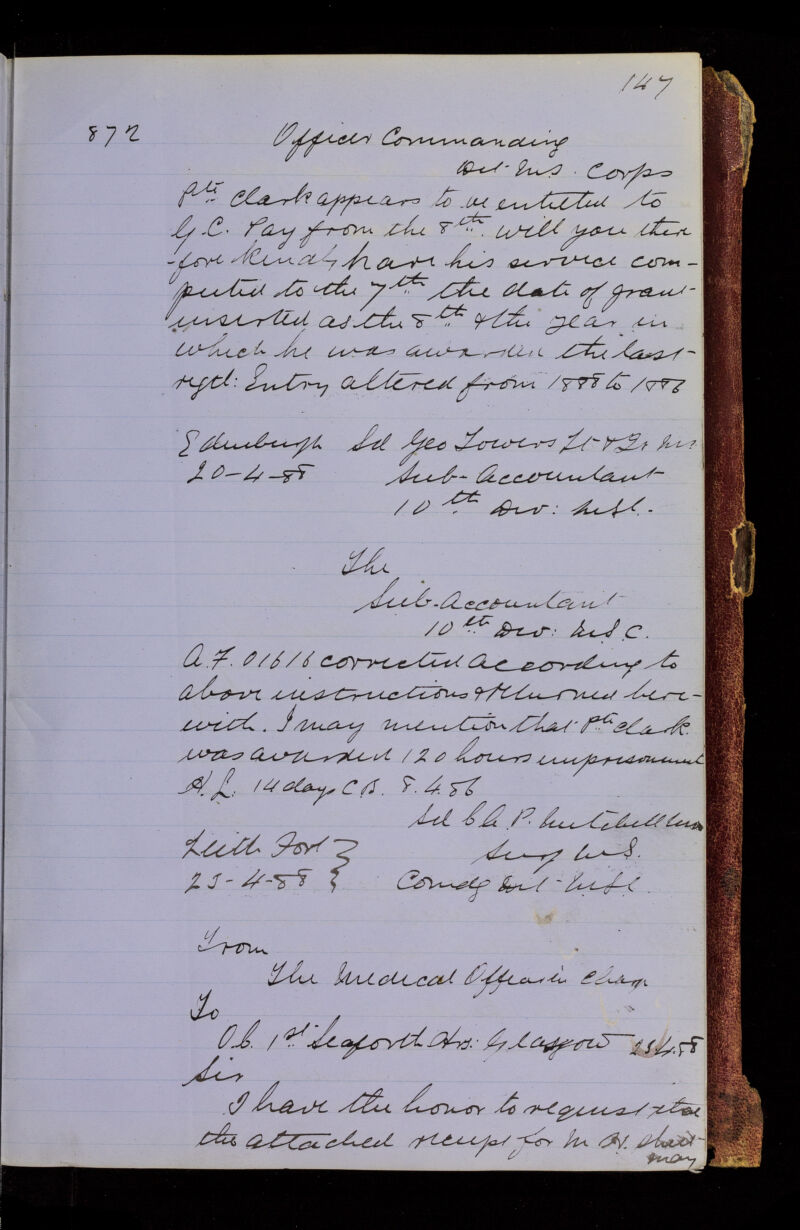 147
872 Officer Commanding
Det. M.S. Corps
Pte. Clark appears to be entitled to
G.C. Pay from the 8th. will you there
-fore kindly have his service com-
puted to the 7th the date of grant
inserted as the 8th & the year in
which he was awarded the last
regtl: Entry altered from 1888 to 1886
Edinburgh Sd Geo Towers Lt & Qr Mr
20-4-88 Sub-Accountant
10th Div: M.S.C.
The
Sub-Accountant
10th Div: M.S.C.
A.F. O1616 corrected according to
above instructions & returned here-
with. I may mention that Pte Clark
was awarded 120 hours imprisonment
H.L. 14 days C.B. 8.4.86
Sd C.A.P. Mitchell
Leith Fort } Surg M.S.
23-4-88 } Comdg Det M.S.C.
From
The Medical Officer in Charge
To
O.C. 1st Seaforth Hrs: Glasgow 23.4.88
Sir
I have the honor to request that
the attached receipt for M.H. sheet
may